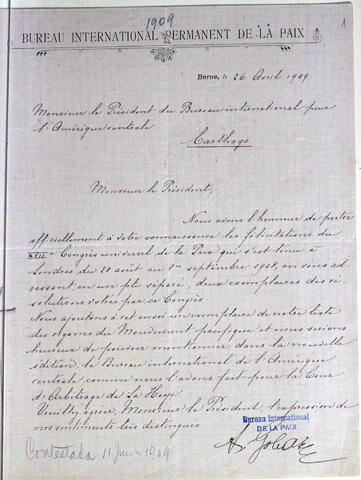 1909
1
BUREAU INTERNATIONAL PERMANENT DE LA PAIX
Berne, le 26 Avril 1909
Monsieur le Président du Bureau international pour
l'Amérique centrale
Carthago.
Monsieur le Président,
Nous avons l'honneur de porter
officiellement à votre connaissance les félicitations du
XVIIe Congrès universel de la Paix qui s'est tenu à
Londres du 20 août au 1er septembre 1908, en vous ad-
ressant en un pli séparé, deux exemplaires des ré-
solutions votées par ce Congrès
Nous ajoutons à cet envoi un exemplaire de notre liste
des organes du Mouvement pacifique et nous serions
heureux de pouvoir mentionner dans la nouvelle
édition, le Bureau international de l'Amérique
centrale comme nous l'avons fait pour la Cour
d'Arbitrage de La Haye
Veuillez agréer, Monsieur le Président, l'expression de
nos sentiments très distingués
Bureau international
DE LA PAIX
Contestada 11 Junio 1909